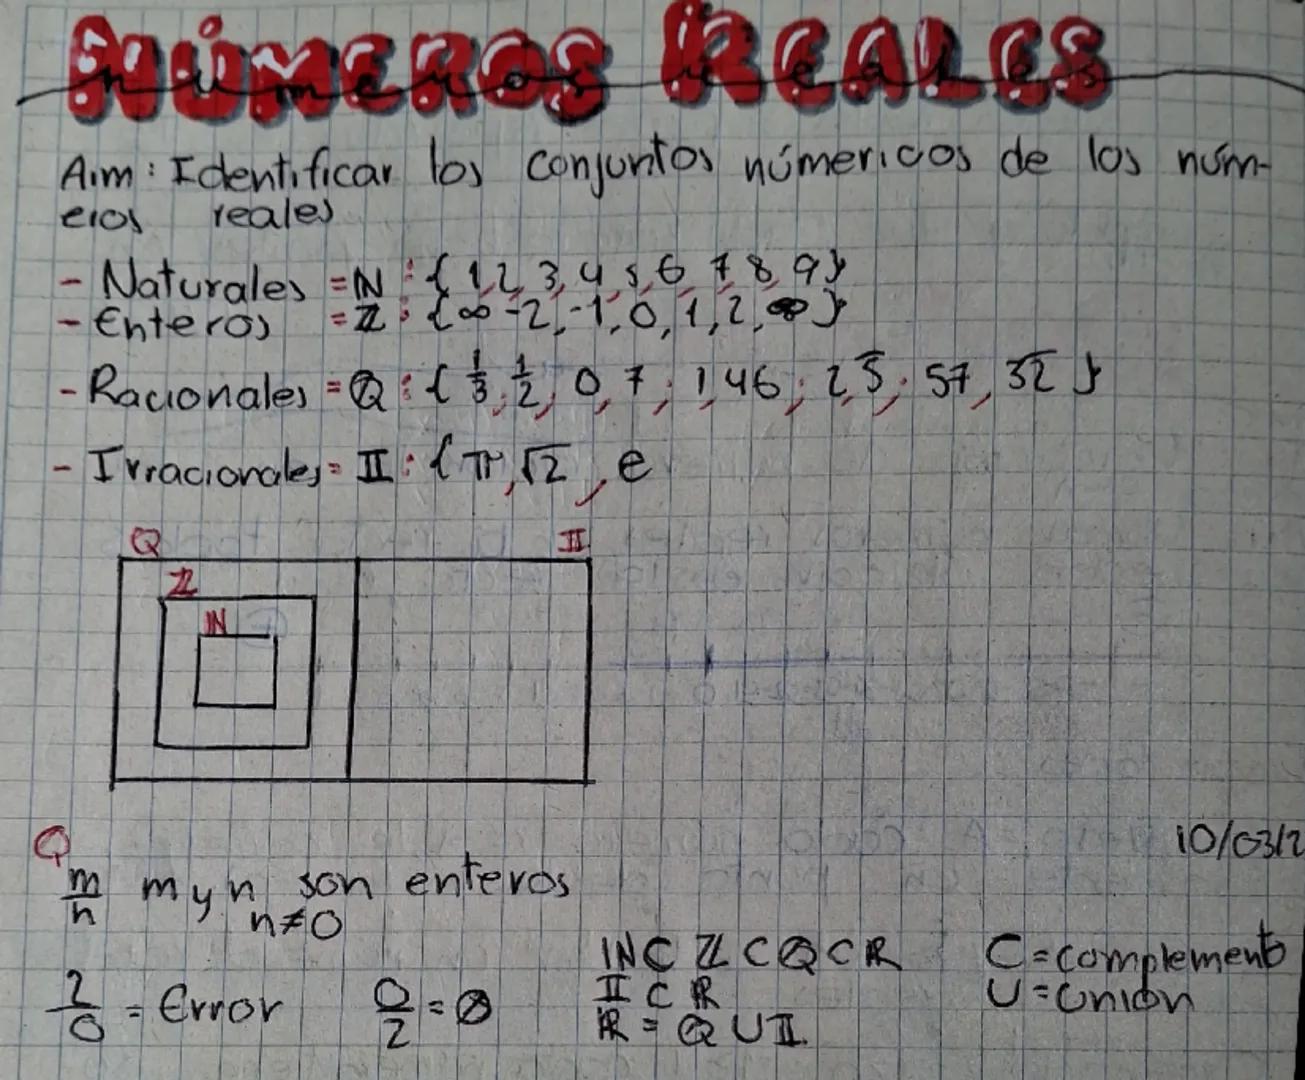 NÚMEROS REALES
números reales
Aim: Identificar los conjuntos númericos de los núm-
eros reales
- Naturales = ℕ : { 1, 2, 3, 4, 5, 6, 7, 8, 9 }
- Enteros = ℤ : { ∞ -2, -1, 0, 1, 2, ∞ }
- Racionales = ℚ : { 1/3, 1/2, 0, 7 ; 1,46 ; 2,5̅ ; 57, 3̅2̅ }
- Irracionales = 𝕀 : { π, √2 , e
ℚ 𝕀
ℤ
ℕ
10/03/2
ℚ
m/n m y n son enteros
n≠0
2/0 = Error 0/2 = 0
ℕ C ℤ C ℚ C ℝ
𝕀 C ℝ
ℝ = ℚ U 𝕀.
C = complemento
U = unión